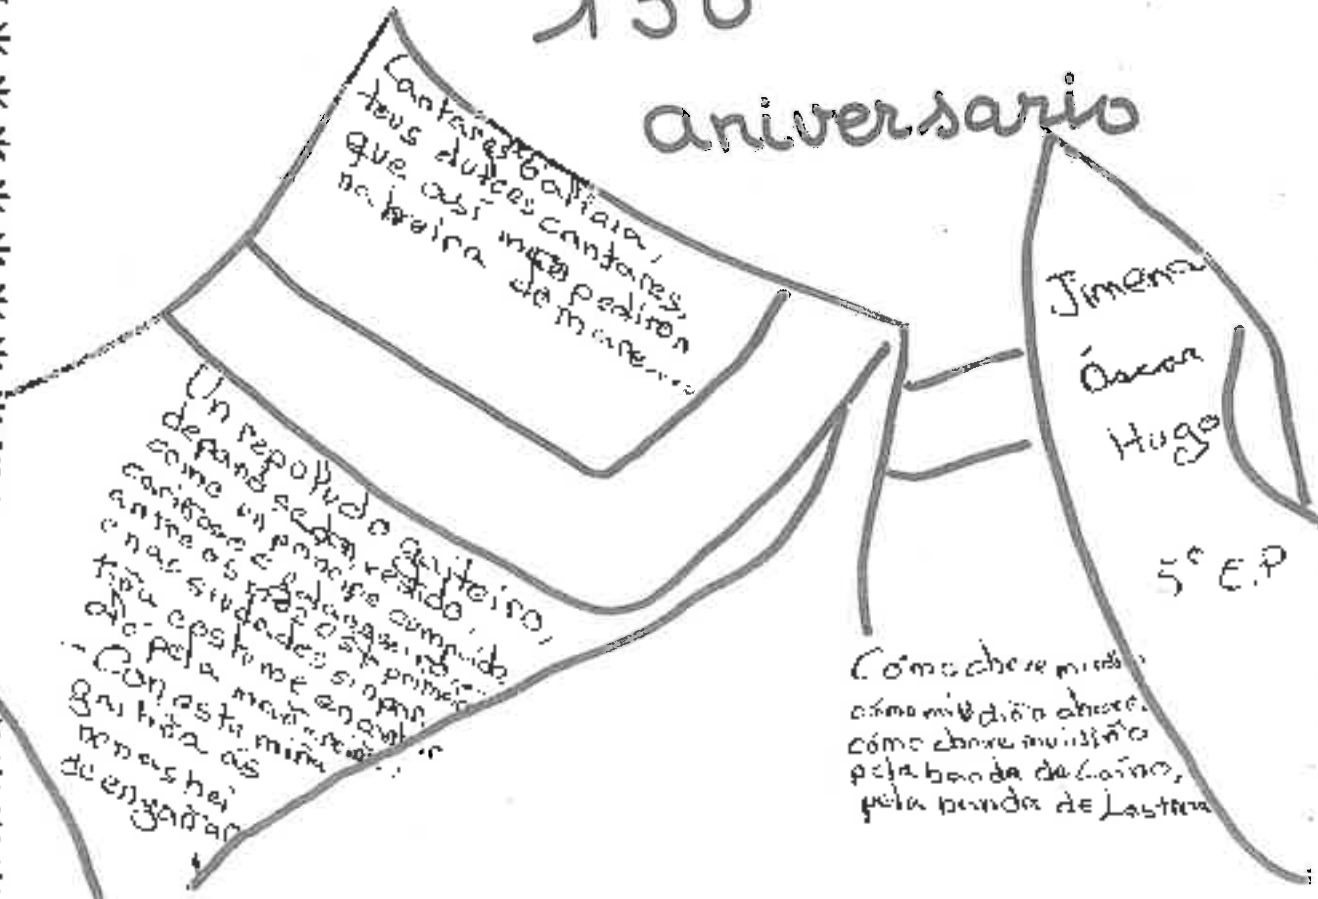 150
aniversario
Cantares Gallaia,
teus dulces cantares,
que así mos pediron
na beira do mare....
Un repolludo gaiteiro,
de pano sedán vestido,
como un príncipe cumprido
cariñoso e falangueiro...
antre os mozos o primeiro
e nas siudades sinpar
tiña costume en cantar
aló pola mañanciña
- Con esta miña
gaitiña ás
nenas hei
de engañar
Cómo chove miudiño
cómo miudiño chove,
cómo chove miudiño
pola banda de Laíño,
pola banda de Lestrove
Jimena
Óscar
Hugo
5º E.P